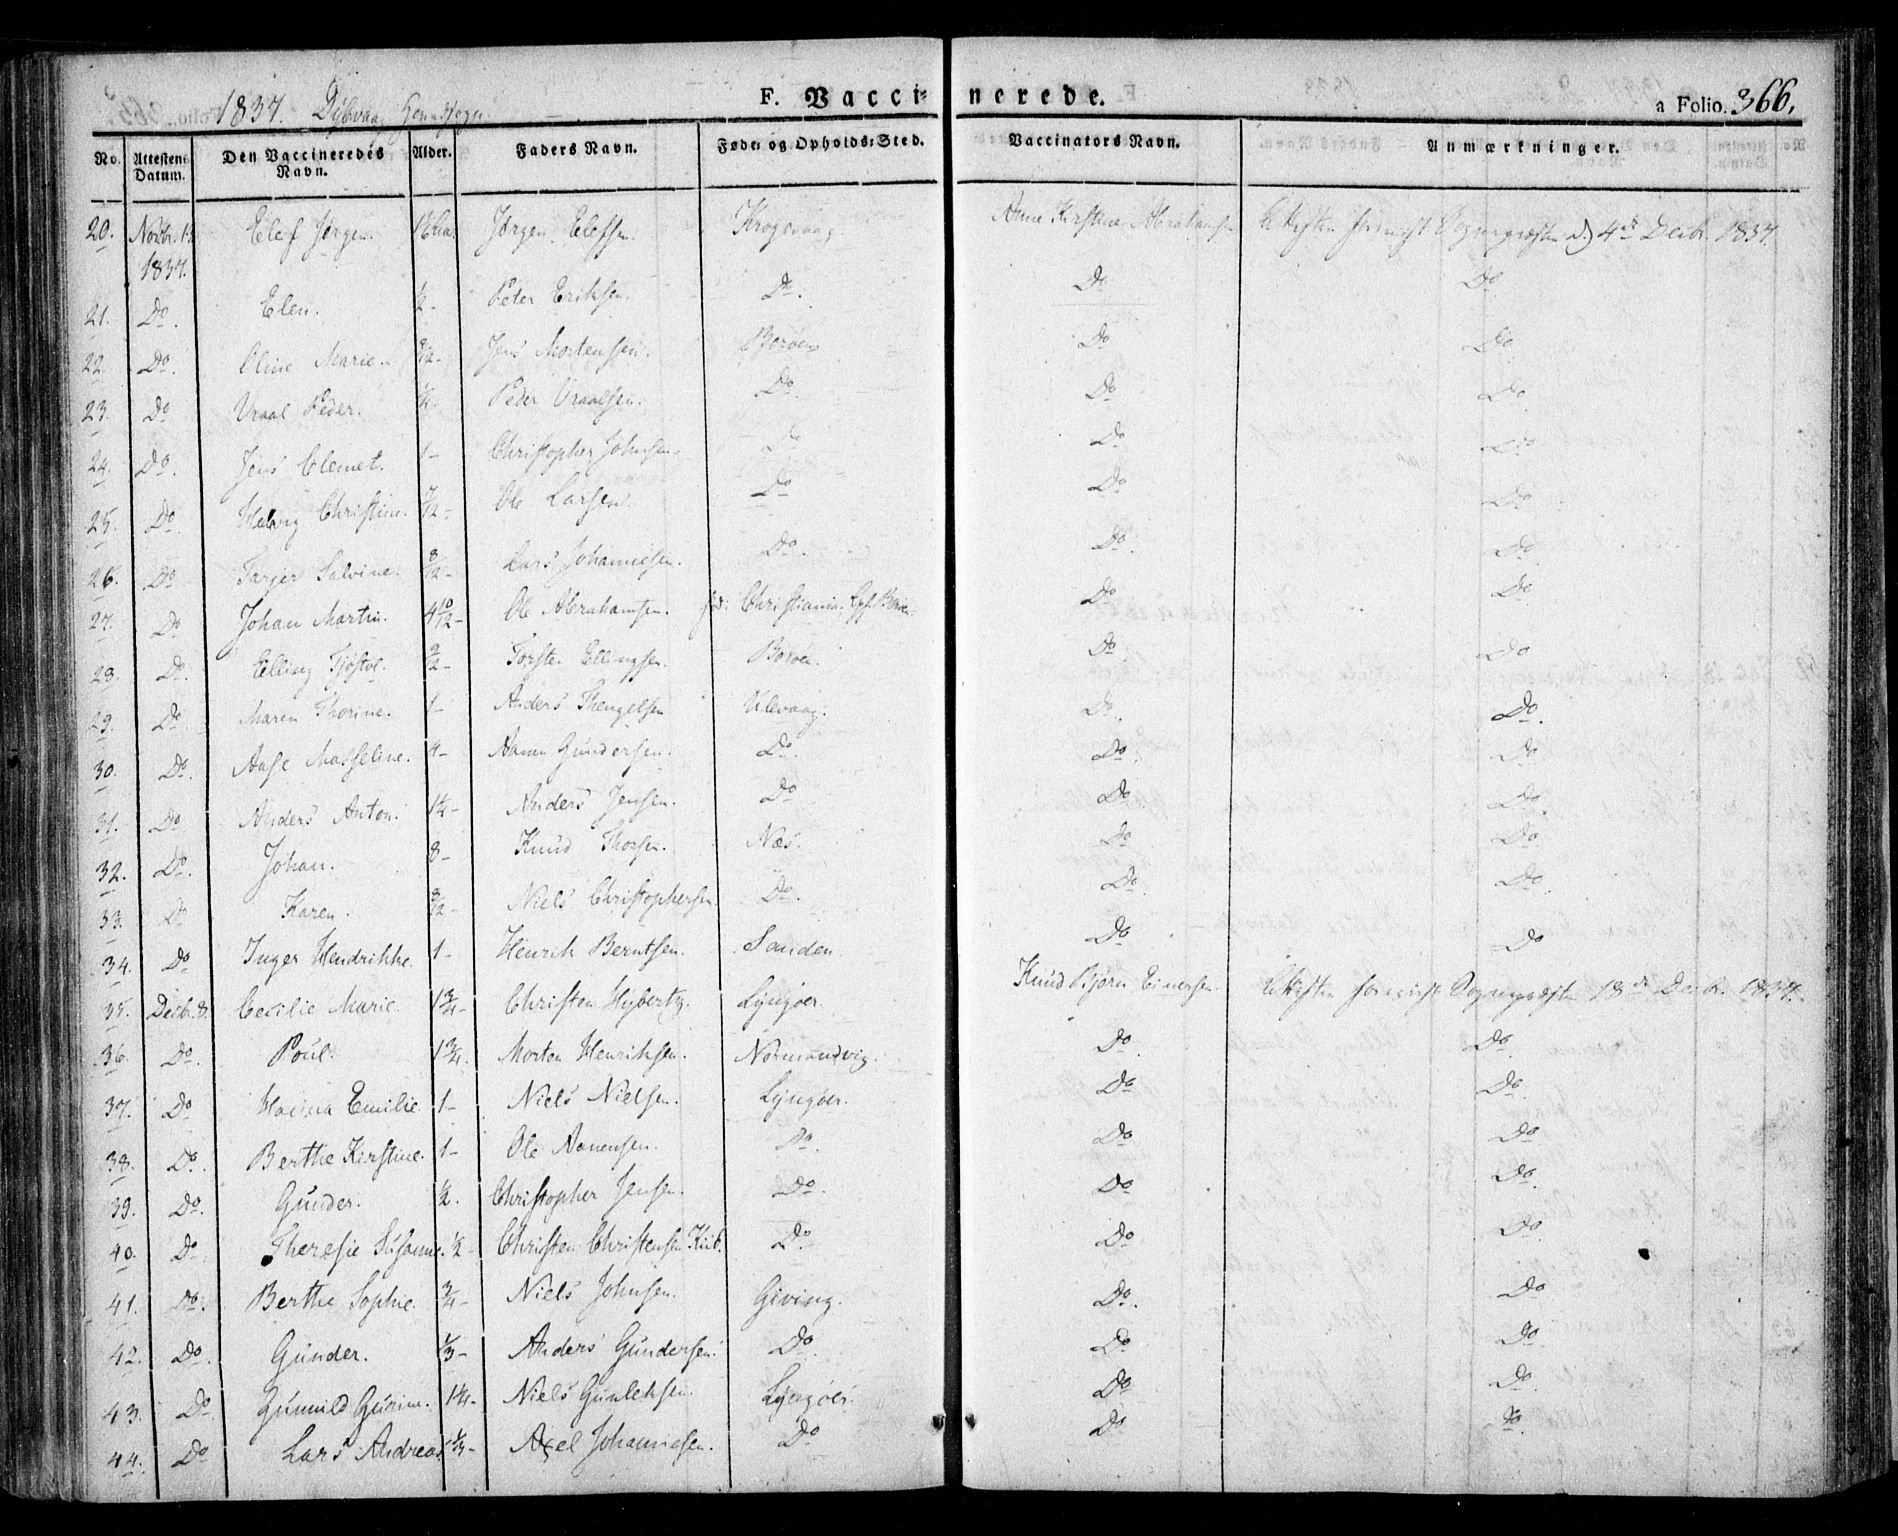 1837. Dybvaag Hoved Sogn.
F. Vaccinerede.
a Folio. 366.
No. | Attestens Datum. | Den Vaccineredes Navn. | Alder. | Faders Navn. | Føde- og Opholds-Sted. | Vaccinators Navn. | Anmærkninger.
20. Novbr. 1837. Elef Jørgen. Jørgen Elefsen. Krogevaag. Anne Kirstine Abrahamsen 4de Decbr. 1837.
21. Do. Elen. ½ - Peter Eriksen. Do. Do Do
22. Do. Oline Marie. 8/12 - Jens Mortensen. Borøen Do Do
23. Do Vraal Peder. Peder Vraalsen. Do. Do Do
24. Do. Jens Clemet. 1 - Christopher Johnsen. Do Do Do
25. Do Helvig Christine. 7/12 - Ole Larsen Do Do Do
26. Do. Targer Salvine. 8/12 - Lars Johannesen. Do. Do. Do
27. Do Johan Martin. 4 10/12 - Ole Abrahamsen. Christiania. Do Do
28. Do. Elling Tjøstol. 9/12 - Torsten Ellingsen. Borøen. Do Do
29. Do Maren Thorine. 1 - Anders Thengelsen Ulevaag. Do. Do.
30. Do. Aase Masseline. 4 - Aanon Gundersen. Do. Do. Do
31. Do Anders Anton. 1¼ - Anders Jensen. Do Do Do.
32. Do. Johan. 8 - Knud Thorsen. Næs. Do Do
33. Do Karen. 8/12 - Niels Christophersen Do. Do Do.
34. Do Inger Hendrikke. 1 - Henrik Berntsen. Sanden. Do Do
35. Decbr. 8. Cecilie Marie. 1¾ - Christen Hybertz. Lyngøer. Knud Bjørn Einersen. 18de Decbr. 1837.
36. Do. Poul. 1¾. Morten Henriksen. Normandvig. Do Do
37. Do Emilie 1 - Niels Nielsen. Lyngøer. Do Do.
38. Do. Berthe Kirstine. 1 - Ole Aanensen. Do. Do Do
39. Do. Gunder. ½. Christopher Jensen. Do. Do Do
40. Do Theresie Susanne. ½ - Christen Christensen Kiib. Do. Do Do
41. Do. Berthe Sophie. ¾ - Niels Johnsen. Giving. Do. Do
42. Do. Gunder. ⅓ - Anders Gundersen. Do Do Do
43. Do Gunnild Gurine. 1¼ - Niels Gunleksen. Lyngøer. Do Do
44. Do Lars Andreas ⅓ - Axel Johannesen. Do Do Do.